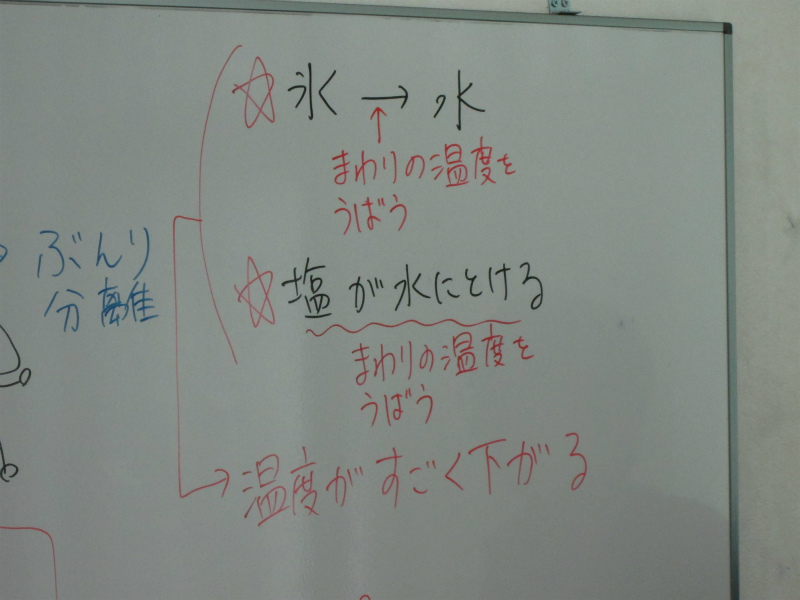 ☆氷 → 水
↑
まわりの温度を
うばう
ぶんり
分離
☆塩が水にとける
まわりの温度を
うばう
→温度がすごく下がる